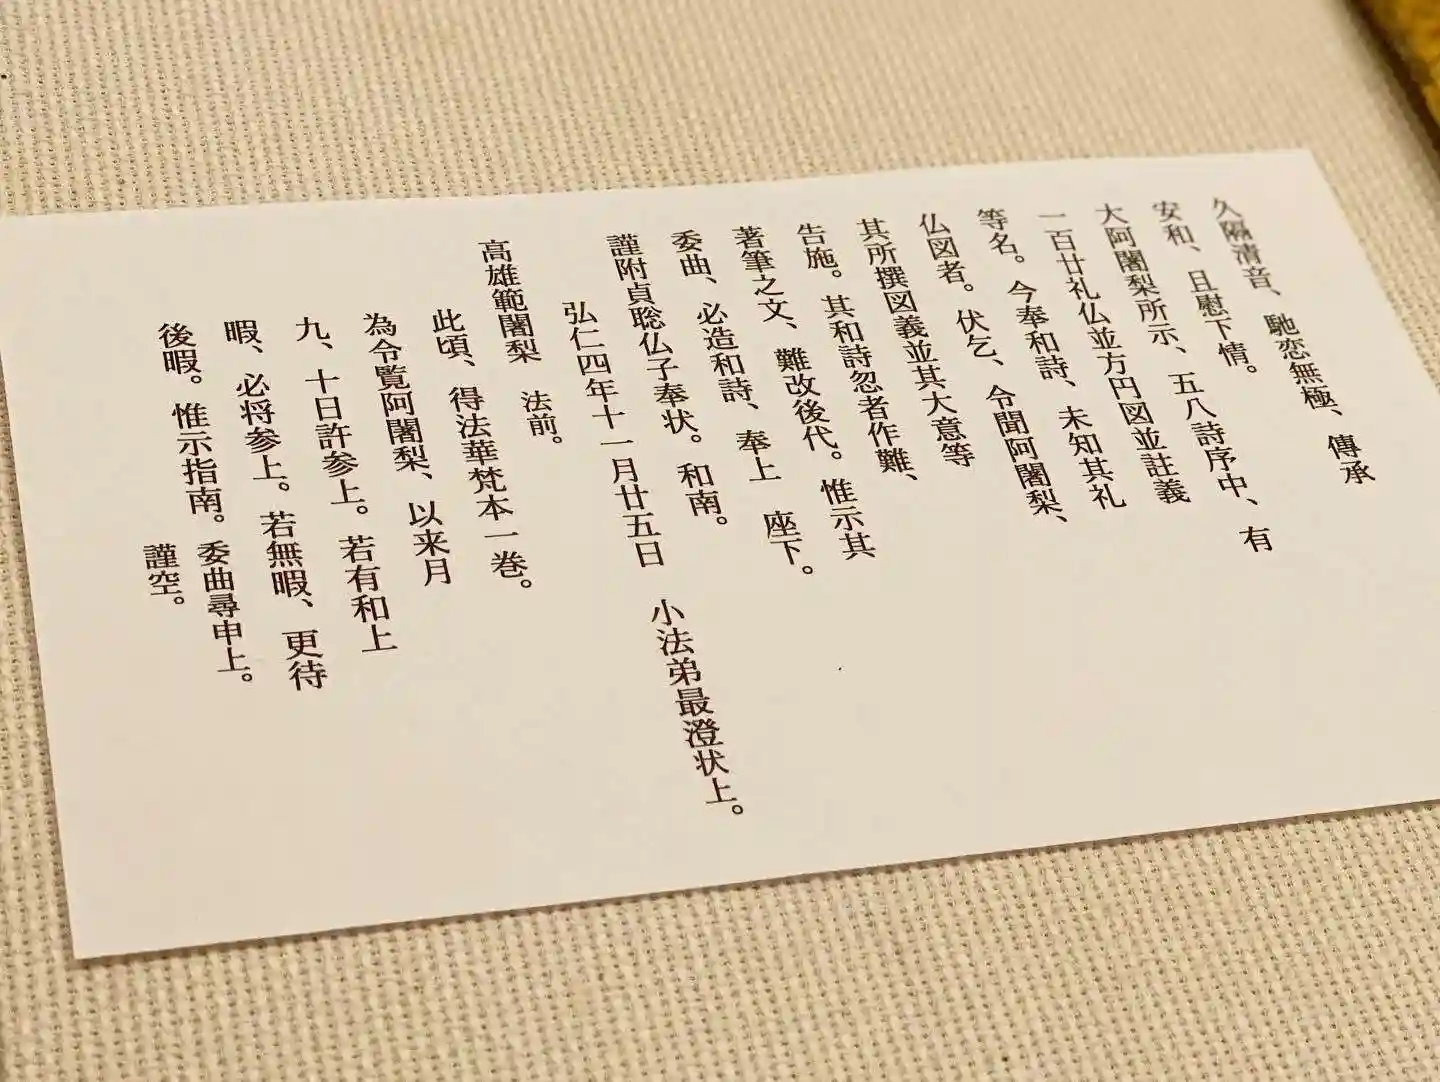 久隔清音、馳恋無極、傳承
安和、且慰下情。
大阿闍梨所示、五八詩序中、有
一百廿礼仏並方円図並註義
等名。今奉和詩、未知其礼
仏図者。伏乞、令聞阿闍梨、
其所撰図義並其大意等
告施。其和詩忽者作難、
著筆之文、難改後代。惟示其
委曲、必造和詩、奉上　座下。
謹附貞聡仏子奉状。和南。
弘仁四年十一月廿五日　小法弟最澄状上。
高雄範闍梨　法前。
此頃、得法華梵本一巻。
為令覧阿闍梨、以来月
九、十日許参上。若有和上
暇、必将参上。若無暇、更待
後暇。惟示指南。委曲尋申上。
謹空。